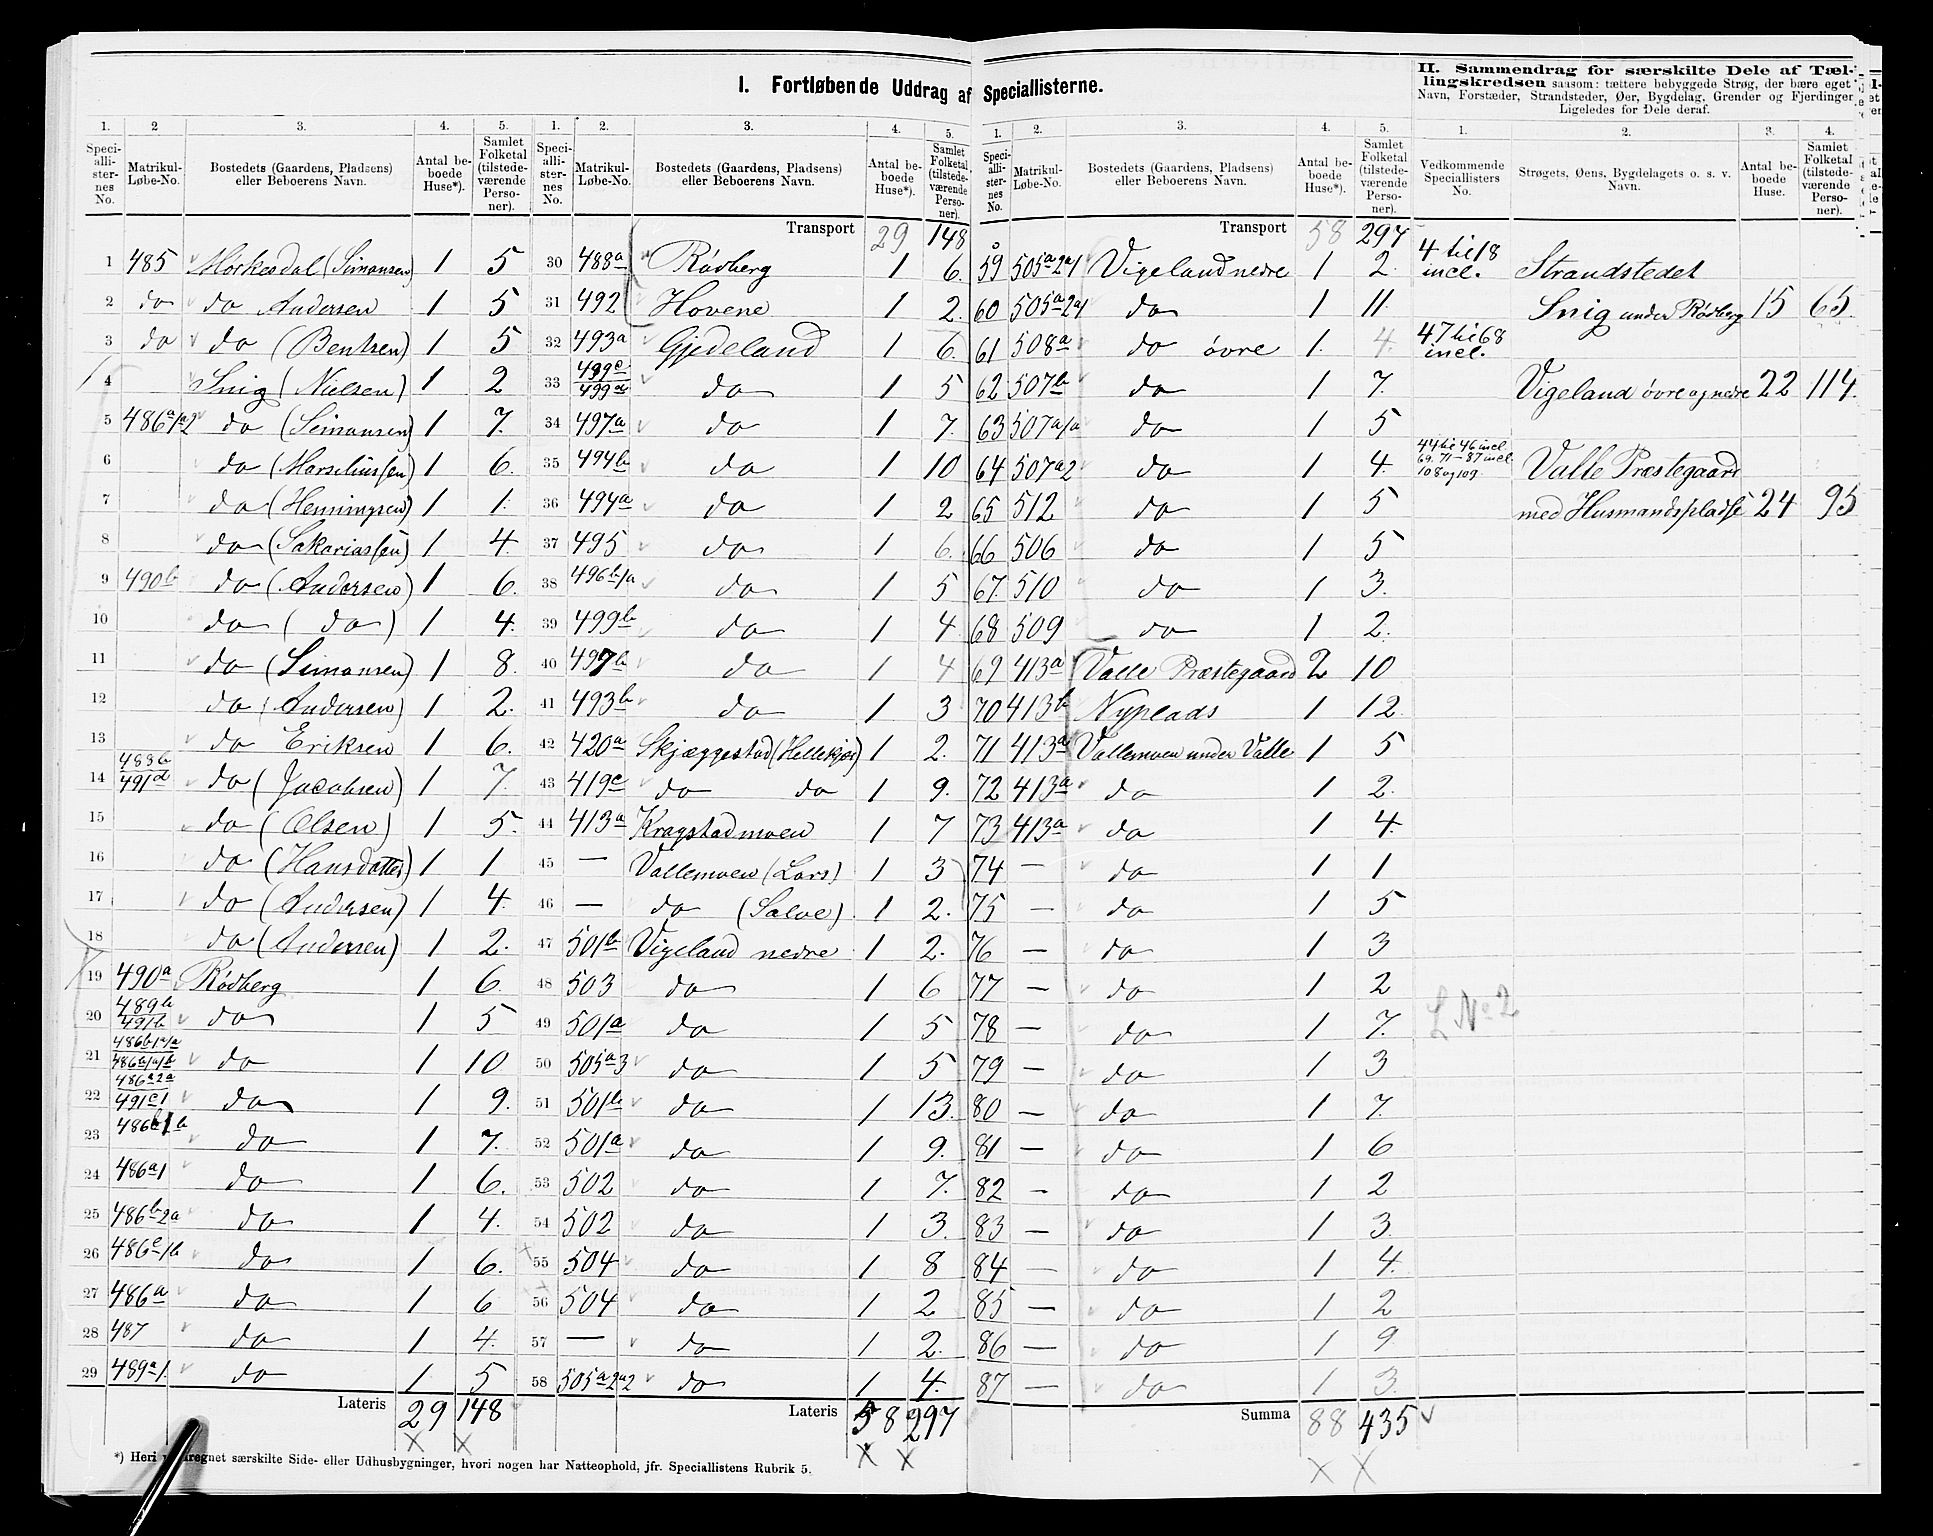 I. Fortløbende Uddrag af Speciallisterne.
II. Sammendrag for særskilte Dele af Tæl-
lingskredsen saasom: tættere bebyggede Strøg, der bære eget
Navn, Forstæder, Strandsteder, Øer, Bygdelag, Grender og Fjerdinger
Ligeledes for Dele deraf.
1. 2 3. 4. 5.
Speci-alli-ster-nes No. Matrikul-Løbe-No. Bostedets (Gaardens, Pladsens) eller Beboerens Navn. Antal be-boede Huse*). Samlet Folketal (tilstede-værende Perso-ner).
1 485 Morkesdal (Simonsen) 1 5
2 do do Andersen 1 5
3 do do (Bentsen) 1 5
4 Snig (Nielsen) 1 2
5 486a/a2 do (Simonsen) 1 7.
6 do (Marseliussen) 1 6.
7 do (Henningsen) 1 1.
8 do (Sakariassen) 1 4.
9 490b do (Andersen) 1 6.
10 do ( do ) 1 4.
11 do (Simonsen) 1 8.
12 do (Andersen) 1 2.
13 do Eriksen 1 6.
14 483b 491d do (Jacobsen) 1 7.
15 do (Olsen) 1 5.
16 do (Hansdatter) 1 1
17 do (Andersen) 1 4.
18 do (Andersen) 1 2.
19 490a Rödberg 1 6.
20 489b 491b do 1 5
21 486b1a/a 486b1a/b do 1 10
22 486a2a 491c1 do 1 9.
23 486b1b do 1 7.
24 486a1 do 1 6.
25 486b2a do 1 4.
26 486c1b do 1 6.
27 486a do 1 6
28 487 do 1 4.
29 489a1. do 1 5
Lateris 29 148
X X
1. 2. 3. 4. 5.
Speci-alli-ster-nes No. Matrikul-Løbe-No. Bostedets (Gaardens, Pladsens) eller Beboerens Navn. Antal be-boede Huse*). Samlet Folketal (tilstede-værende Perso-ner).
Transport 29 148
30 488a Rödberg 1 6.
31 492 Hovene 1 2.
32 493a Gjedeland 1 6.
33 499c 499d do 1 5
34 497a do 1 7.
35 494b do 1 10
36 494a do 1 2
37 495 do 1 6.
38 496b/a do 1 5
39 499b do 1 4
40 497b do 1 4
41 493b do 1 3
42 420a Skjæggestad (Helleskjær) 1 2.
43 419c do do 1 9.
44 413a Kragstadmoen 1 7
45 — Vallemoen (Lars) 1 3
46 — do (Salve) 1 2.
47 501b Vigeland nedre 1 2.
48 503 do 1 6
49 501a do 1 5
50 505a3 do 1 5
51 501b do 1 13.
52 501a do 1 9.
53 502 do 1 7.
54 502 do 1 3.
55 504 do 1 8
56 504 do 1 2
57 — do 1 2.
58 505a2a2 do 1 4.
Lateris 58 297
X X
1. 2. 3. 4. 5.
Speci-alli-ster-nes No. Matrikul-Løbe-No. Bostedets (Gaardens, Pladsens) eller Beboerens Navn. Antal be-boede Huse*). Samlet Folketal (tilstede-værende Perso-ner).
Transport 58 297
59 505a2a1 Vigeland nedre 1 2.
60 505a2a1 do 1 11.
61 508a do övre 1. 4.
62 507b do 1 7.
63 507a/a do 1 5
64 507a2 do 1 4.
65 512 do 1 5
66 506 do 1 5
67. 510 do 1 3.
68 509 do 1 2.
69 413a Valle Præstegaard 2 10
70 413b Nyplads 1 12.
71 413a Vallemoen under Valle 1 5
72 413a do 1 2.
73 413a do 1 4.
74 — do 1 1
75 — do 1 5
76 — do 1 3
77 — do 1 2
78 — do 1 7.
79 — do 1 3
80 — do 1 7.
81 — do 1 6
82 — do 1 2
83 — do 1 3.
84 — do 1 4.
85 — do 1 2
86 — do 1 9
87 — do 1 3.
Summa 88 435
X X
1. 2. 3. 4.
Vedkommende Speciallisters No. Strøgets, Øens, Bygdelagets o. s. v. Navn. Antal be-boede Huse. Samlet Folketal (tilstede-værende Perso-ner).
4 til 18 incl. Strandstedet
Snig under Rödberg 15 65.
47 til 68 incl.
Vigeland övre og nedre 22 114.
44 til 46 incl. 69. 71–87 incl. 108 og 109. Valle Præstegaard
med Husmandspladse 24 95
L No 2
*) Heri regnet særskilte Side- eller Udhusbygninger, hvori nogen har Natteophold, jfr. Speciallistens Rubrik 5.